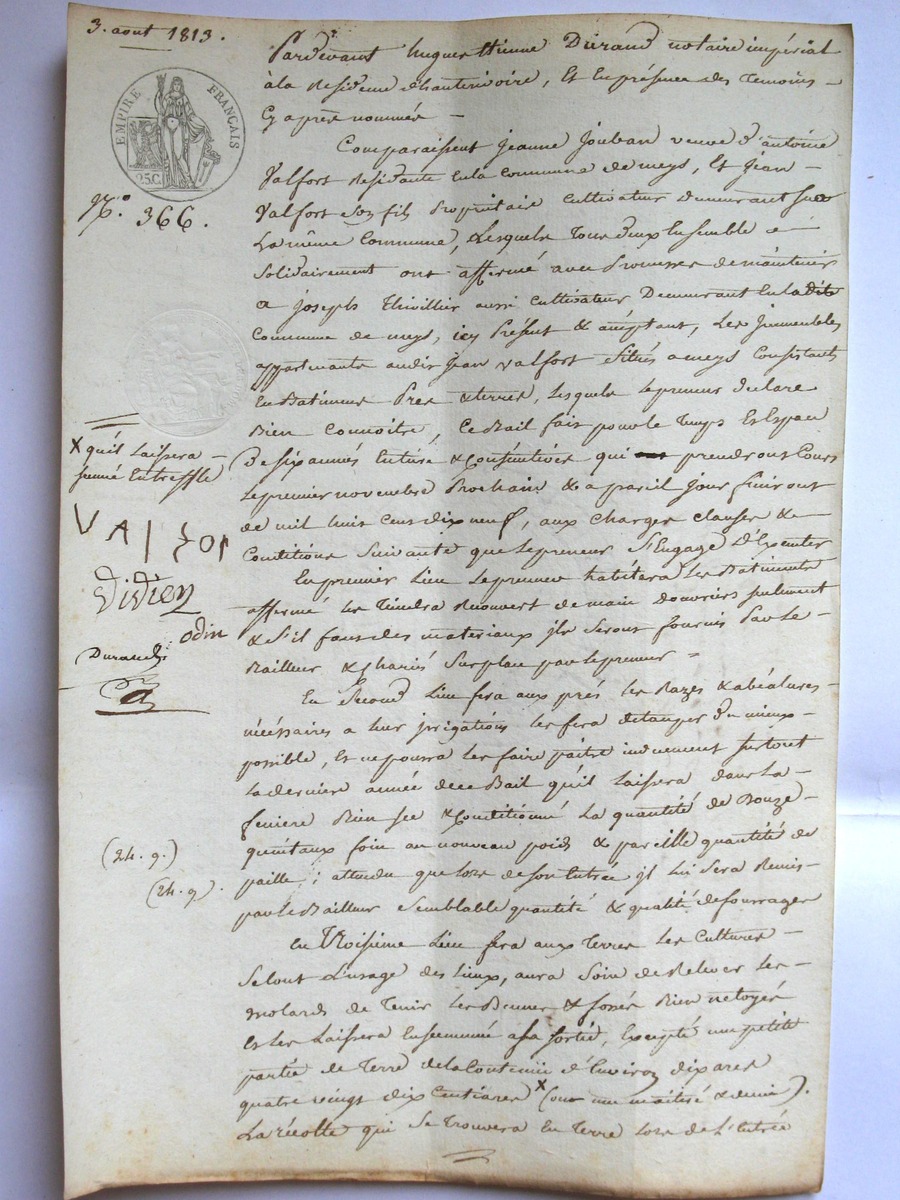 3. aout 1813.
EMPIRE FRANÇAIS
25 C.
N.o 366.
Pardevant hugues Etienne Durand notaire impérial
à la Residence de hauterivoire, Et En présence des Temoins
Cy après nommés
Comparaissent Jeanne Jouban veuve d'antoine
Valfort Residante En la Commune de meys, Et Jean
Valfort Son fils Propriétaire Cultivateur Demeurant Sur
La même Commune, Lesquels Tous deux Ensemble &
Solidairement ont affermé avec Promesse de maintenir
a Joseph Thivillier aussi Cultivateur Demeurant En la dite
Commune de meys, icy Présent & acceptant, Les Immeubles
appartenants audit Jean Valfort Situés a meys Consistants
En Batiments Pres & terres, Lesquels Le preneur declare
Bien Connoitre, Ce Bail fait pour le Temps Et Espace
De six années Entiere & Consécutives qui prendront Cours
Le premier novembre Prochain & a pareil jour finiront
de mil huit Cent dix neuf, aux Charges clauses &
Conditions Suivante que Le preneur S'Engage D'Executer
En premier Lieu Le preneur habitera Les Batiments
affermé Les Tiendra Recouvert de main D'ouvriers seulement
& S'il faut des materiaux ils Seront fournis Par Le
Bailleur & chariés Sur place par Le preneur =
En Second Lieu fera aux prés les Razes & abéalures
nécéssaires a leur irrigations les fera detauper du mieux
possible, Et ne pourra les faire paitre induement surtout
La derniere année de ce Bail qu'il Laissera dans La
feniere Bien Sec & Conditionné La quantité de Douze
quintaux foin au nouveau poids & pareille quantité de
paille ; attendu que lors de son Entrée il Lui Sera Remis
par le Bailleur Semblable quantité & qualité de fourrages
En Troisieme Lieu fera aux Terres Les Cultures
Selont L'usage des Lieux, aura Soin de Relever Les
molards de Tenir Les Bennes & fossés Bien netoyés
Et Les Laissera Ensemencé a Sa Sortie, Excepté une petite
partie de Terre de la Contenue d'Environ dix ares
quatre vingt dix Centiares X (ou une maitiré & demi).
La récolte qui Se Trouvera En Terre Lors de L'Entrée
X qu'il Laissera
semé En treffle
VALFOR
Didier
odin
Durand
(24. q.)
(24. q.)